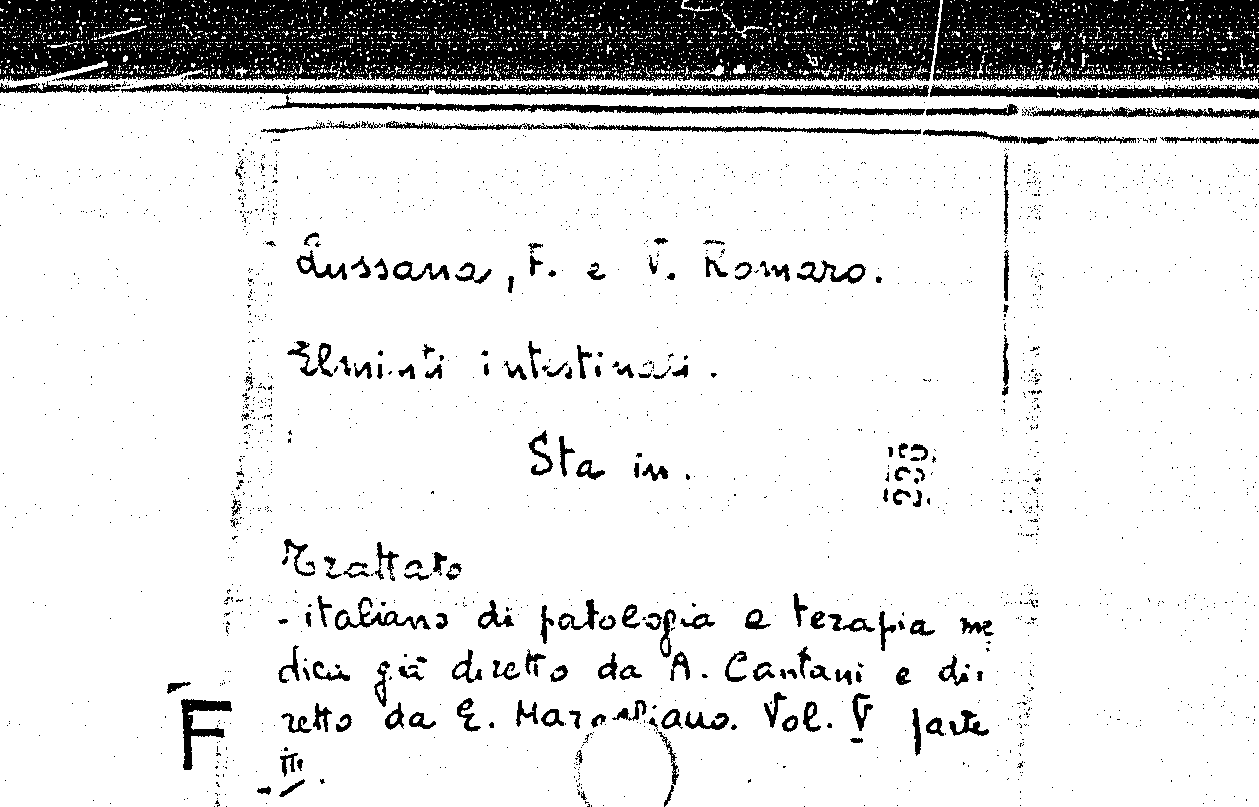 Lussana, F. e V. Romaro.
Elminti intestinali.
Sta in.
Trattato
- italiano di patologia e terapia me
dica già diretto da A. Cantani e di-
retto da E. Maragliano. Vol. V parte
III.
F